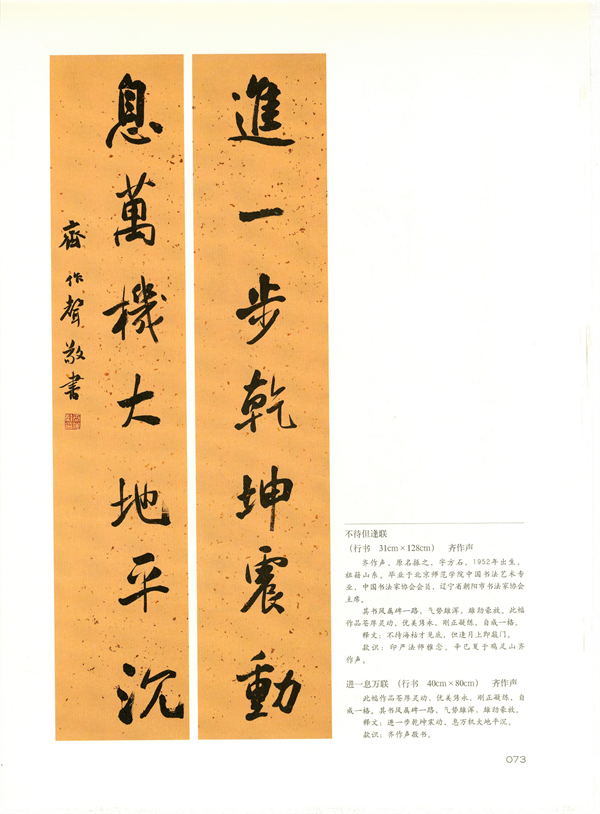 進一步乾坤震動
息萬機大地平沉
齊作聲敬書
不待但逢联
（行书　31cm×128cm）　齐作声
齐作声，原名振之，字方石，1952年出生，
祖籍山东。毕业于北京师范学院中国书法艺术专
业，中国书法家协会会员，辽宁省朝阳市书法家协会
主席。
其书风属碑一路，气势雄浑，雄劲豪放。此幅
作品苍厚灵动，优美隽永，刚正凝练，自成一格。
释文：不待海枯才见底，但逢月上即敲门。
款识：印严法师雅念。辛巳夏于鸡足山齐
作声。
进一息万联　（行书　40cm×80cm）　齐作声
此幅作品苍厚灵动，优美隽永，刚正凝练，自
成一格。其书风属碑一路，气势雄浑，雄劲豪放。
释文：进一步乾坤震动，息万机大地平沉。
款识：齐作声敬书。
073